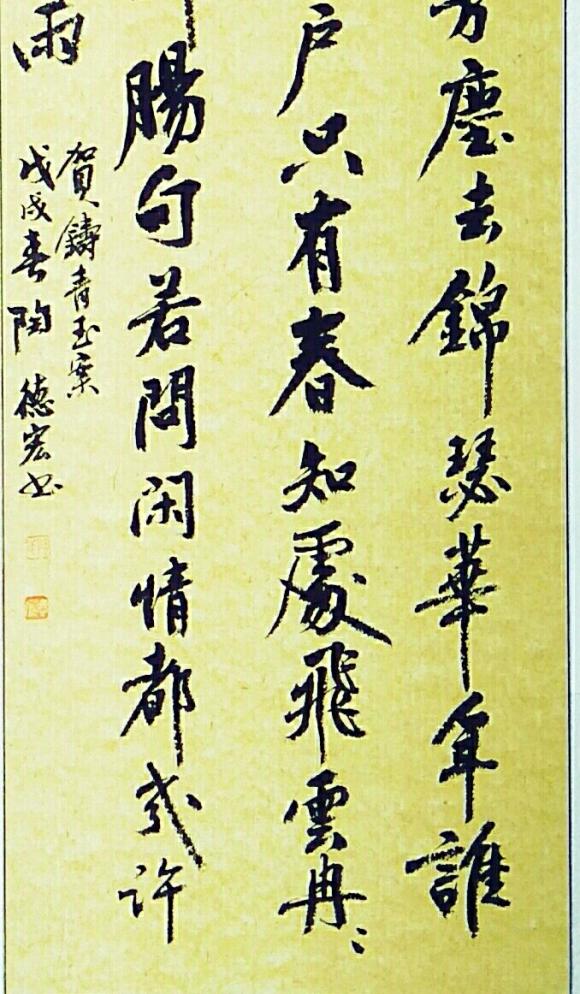 芳塵去錦瑟華年誰
户只有春知處飛雲冉〻
腸句若問閑情都幾許
雨
賀鑄青玉案
戊戌春陶德宏书